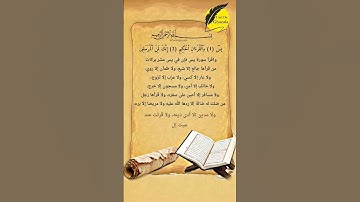 يس (1) والقرآن الحكيم (2) إنك لمن المرسلين
واقرأ سورة يس فإن في يس عشر بركات
من قرأها جائع إلا شبع، ولا ظمآن إلا روي،
ولا عار إلا كسي، ولا عزب إلا تزوج،
ولا خائف إلا أمن، ولا مسجون إلا خرج،
ولا مسافر إلا أعين على سفره، ولا قرأها رجل
ضلت له ضالة إلا ردها الله عليه ولا مريضا إلا برء
ولا مدين إلا أدى دينه، ولا قرئت عند
ميت إل